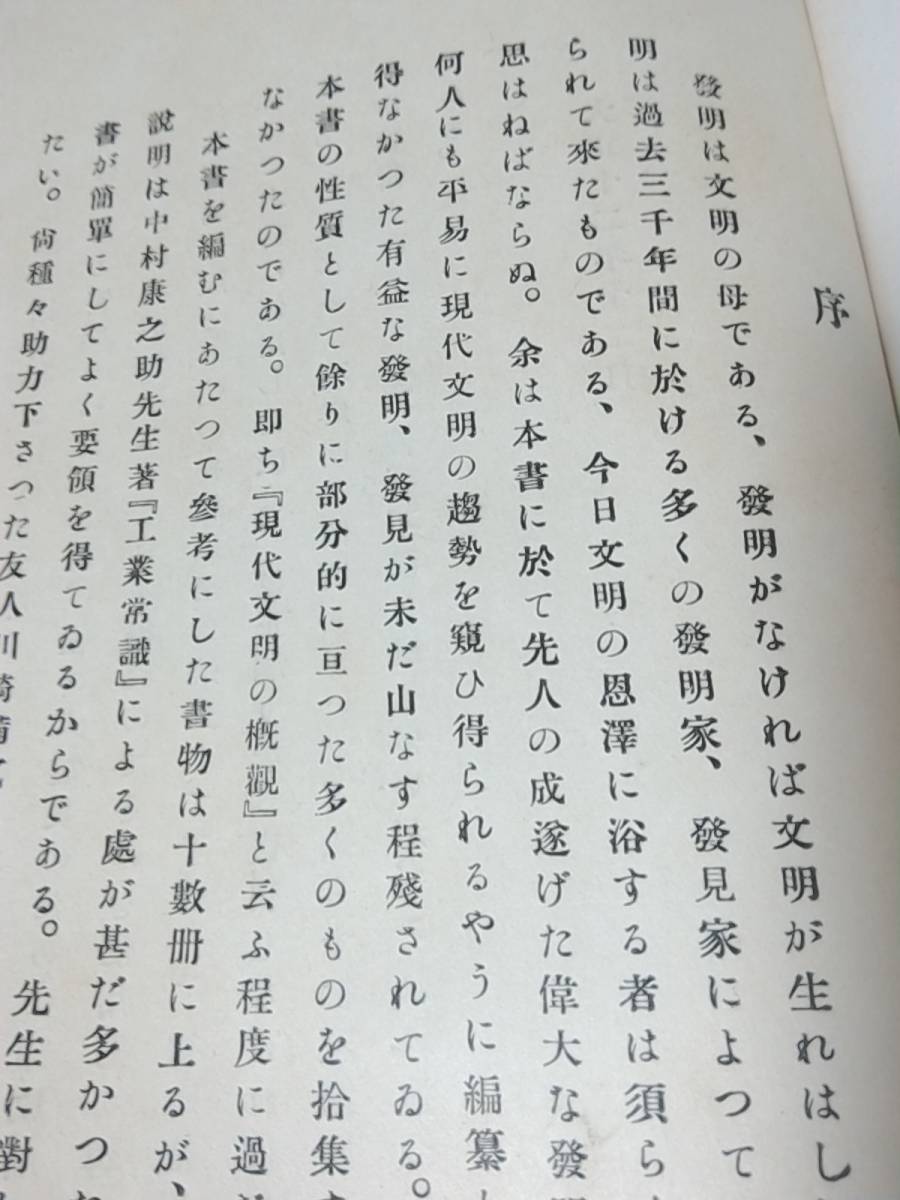 序
發明は文明の母である、發明がなければ文明が生れはし
明は過去三千年間に於ける多くの發明家、發見家によつて
られて來たものである、今日文明の恩澤に浴する者は須ら
思はねばならぬ。余は本書に於て先人の成遂げた偉大な發
何人にも平易に現代文明の趨勢を窺ひ得られるやうに編纂
得なかつた有益な發明、發見が未だ山なす程殘されてゐる。
本書の性質として餘りに部分的に亘つた多くのものを拾集
なかつたのである。即ち『現代文明の概觀』と云ふ程度に過
本書を編むにあたつて參考にした書物は十數册に上るが、
説明は中村康之助先生著『工業常識』による處が甚だ多かつた
書が簡單にしてよく要領を得てゐるからである。先生に對
たい。尚種々助力下さつた友人川崎